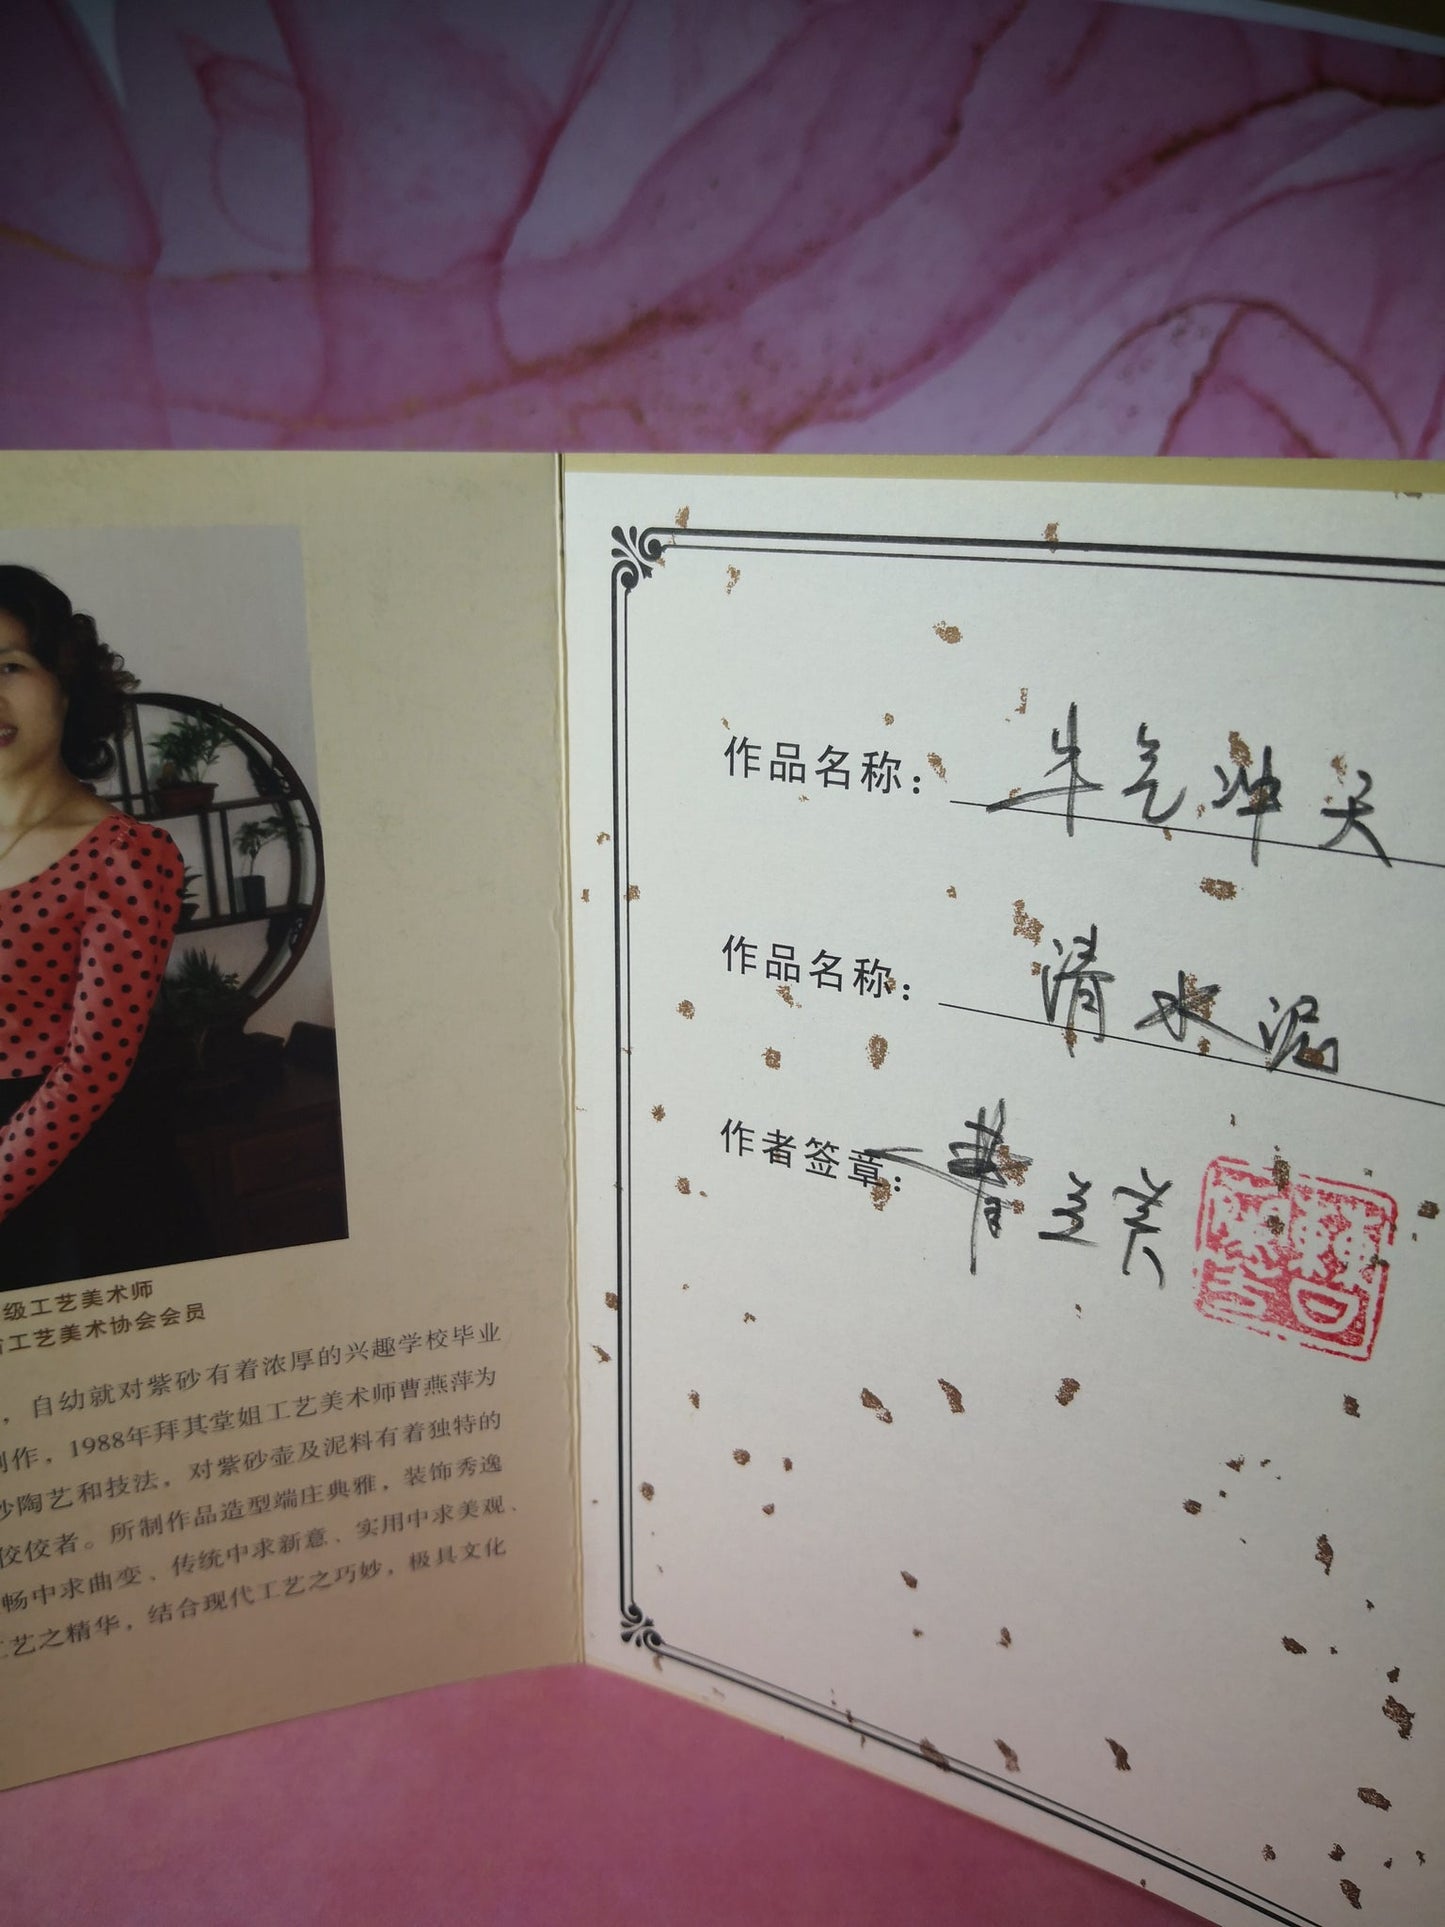 级工艺美术师
省工艺美术协会会员
，自幼就对紫砂有着浓厚的兴趣学校毕业
制作，1988年拜其堂姐工艺美术师曹燕萍为
砂陶艺和技法，对紫砂壶及泥料有着独特的
佼佼者。所制作品造型端庄典雅，装饰秀逸
畅中求曲变、传统中求新意、实用中求美观、
工艺之精华，结合现代工艺之巧妙，极具文化
作品名称： 牛气冲天
作品名称： 清水泥
作者签章： 曹